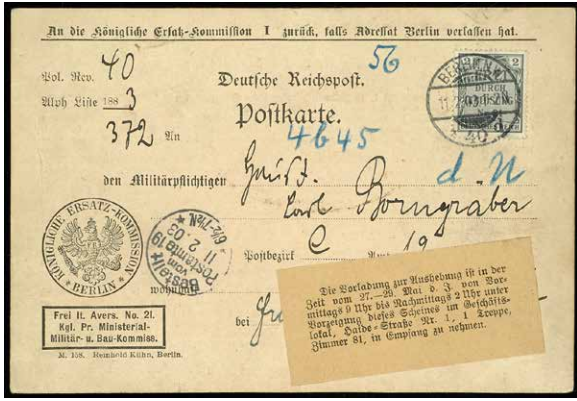 An die Königliche Ersatz-Kommission I zurück, falls Adressat Berlin verlassen hat.
56
Pol. Rev. 40
Deutsche Reichspost.
Alph Liste 1883
Postkarte.
372 An
4645
den Militärpflichtigen
d. N
Carl Borngräber
Postbezirk C 19
wohnhaft
bei
KÖNIGLICHE ERSATZ-KOMMISSION
* BERLIN *
Bestellt
vom
Postamte 19
11. 2. 03
6½-7¾N.
BERLIN N.
2
40
Frei lt. Avers. No. 21.
Kgl. Pr. Ministerial-
Militär- u. Bau-Kommiss.
M. 158. Reinhold Kühn, Berlin.
Die Vorladung zur Aushebung ist in der
Zeit vom 27.—29. Mai d. J. von Vor-
mittags 9 Uhr bis Nachmittags 2 Uhr unter
Vorzeigung dieses Scheines im Geschäfts-
lokal, Haide-Straße Nr. 1, 1 Treppe,
Zimmer 81, in Empfang zu nehmen.